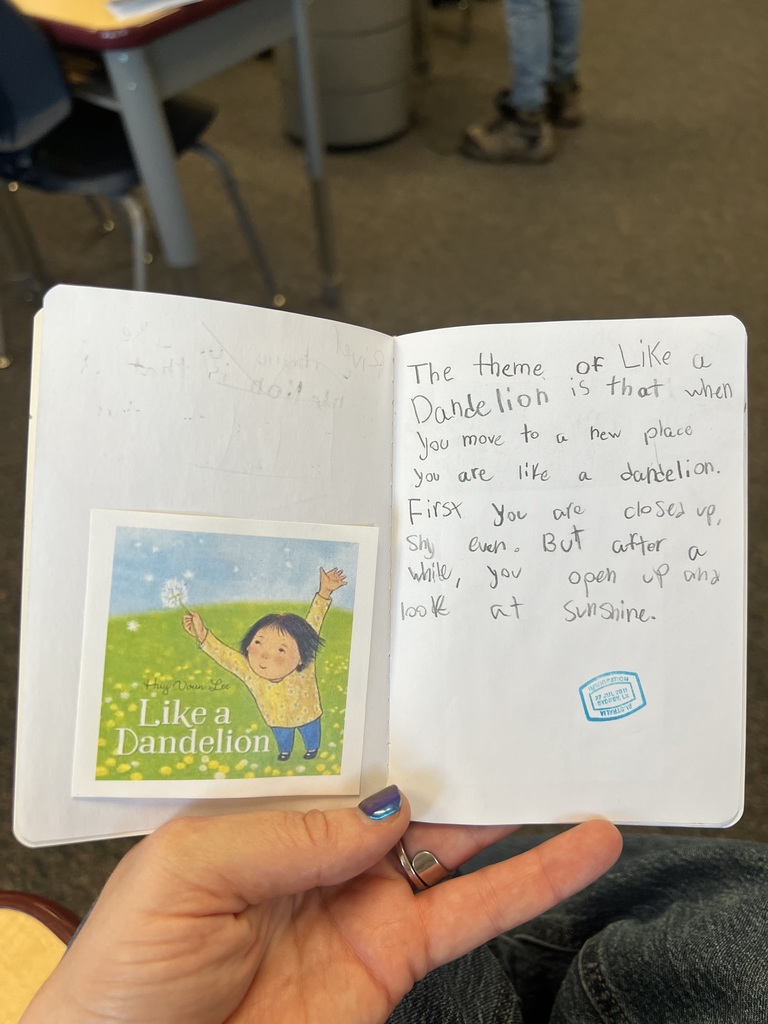 The theme of Like a
Dandelion is that when
you move to a new place
you are like a dandelion.
First you are closed up,
shy even. But after a
while, you open up and
look at sunshine.
Huy Voun Lee
Like a
Dandelion
AUSTRALIA